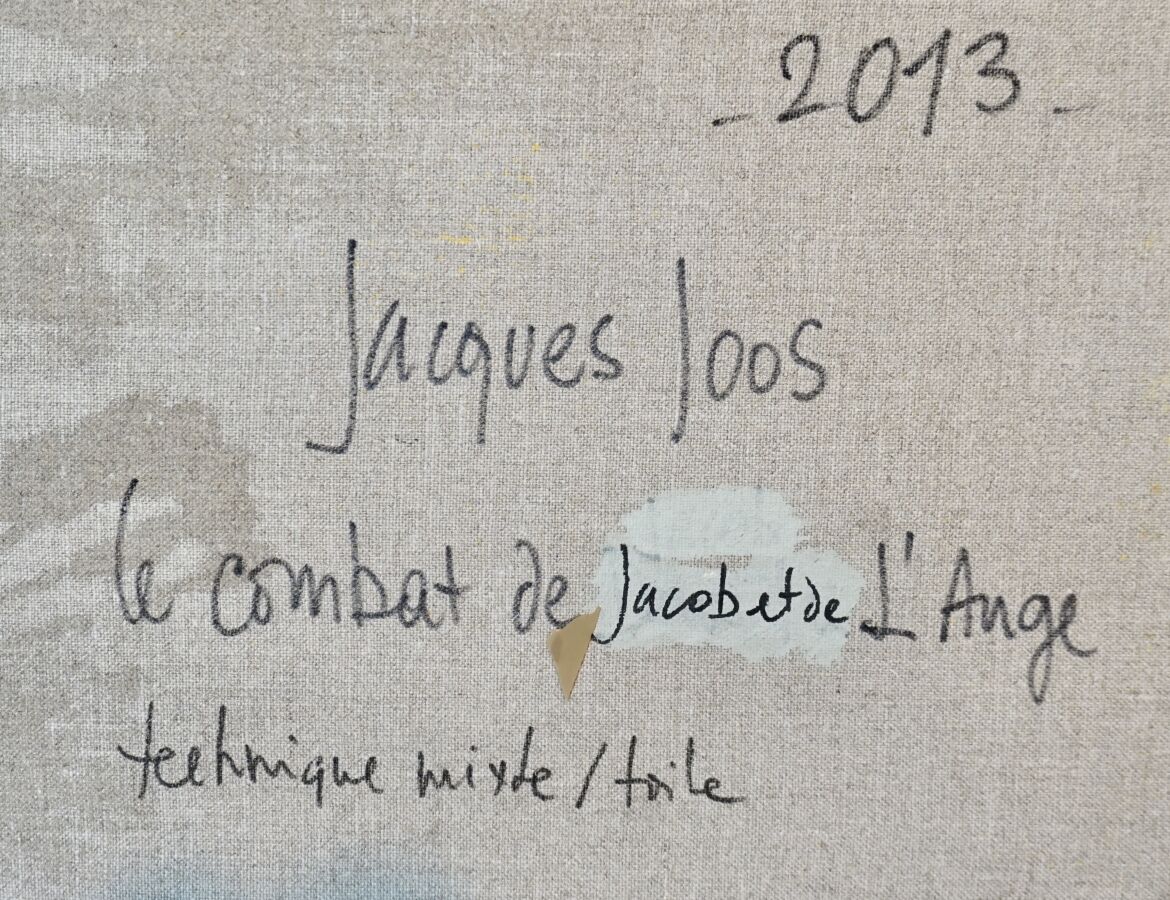 - 2013 -
Jacques Joos
le combat de Jacob et de L'Ange
technique mixte / toile